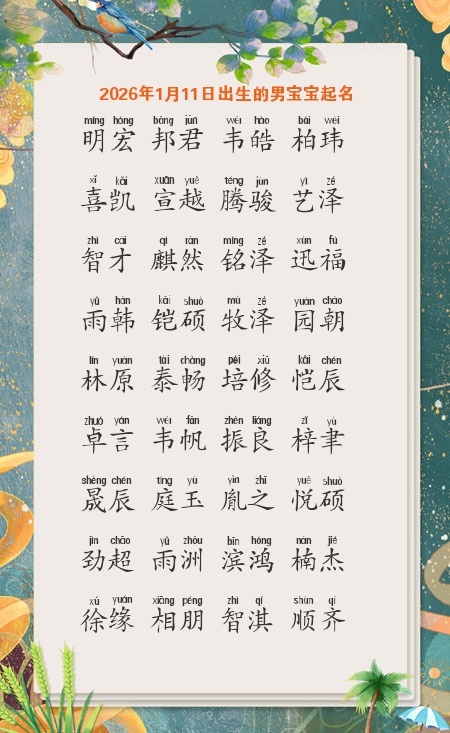 2026年1月11日出生的男宝宝起名
míng hóng bāng jūn wéi hào bái wěi
明宏 邦君 韦皓 柏玮
xǐ kǎi xuān yuè téng jùn yì zé
喜凯 宣越 腾骏 艺泽
zhì cái qí rán míng zé xùn fú
智才 麒然 铭泽 迅福
yǔ hán kǎi shuò mù zé yuán cháo
雨韩 铠硕 牧泽 园朝
lín yuán tài chàng péi xiū kǎi chén
林原 泰畅 培修 恺辰
zhuó yán wéi fān zhèn liáng zǐ yù
卓言 韦帆 振良 梓聿
shèng chén tíng yù yìn zhī yuè shuò
晟辰 庭玉 胤之 悦硕
jìn chāo yǔ zhōu bīn hóng nán jié
劲超 雨洲 滨鸿 楠杰
xú yuán xiāng péng zhì qí shùn qí
徐缘 相朋 智淇 顺齐